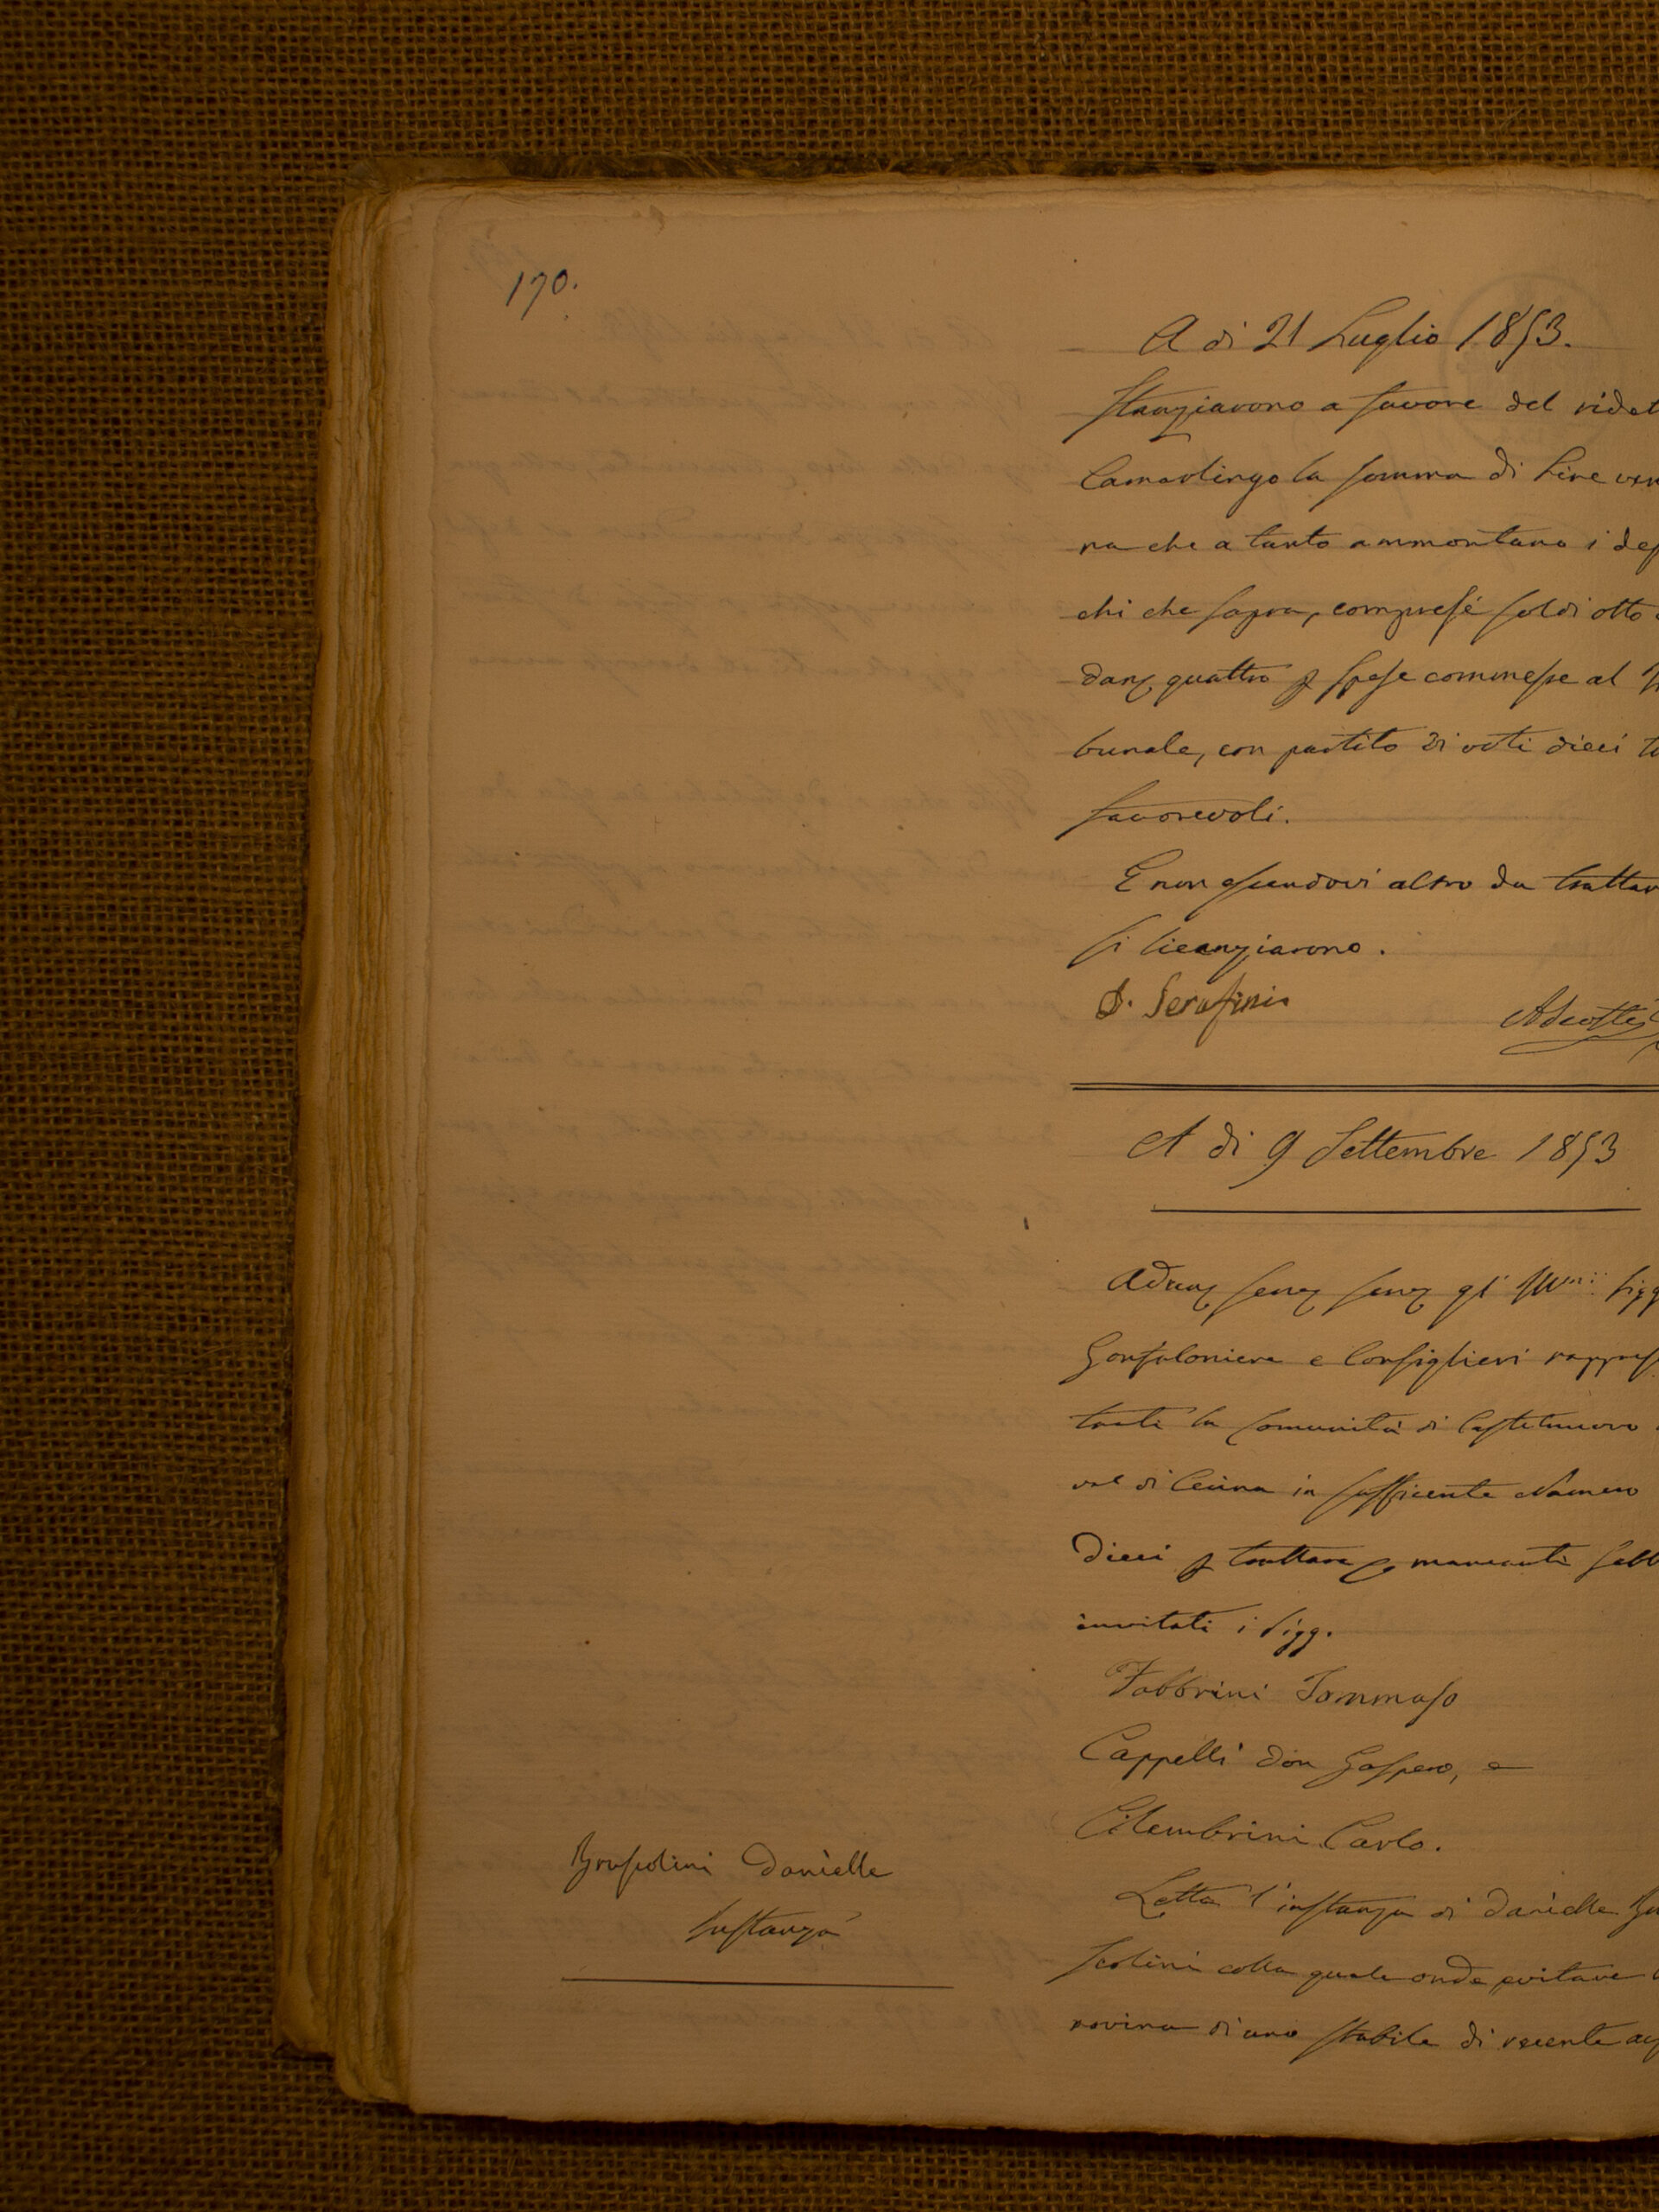 170.
A di 21 Luglio 1853.
Stanziarono a favore del ridet
Camarlingo la somma di Lire ven
na che a tanto ammontano i dep
chi che sopra, comprese soldi otto
danz quattro p spese commesse al
bunale, con partito di voti dieci t
favorevoli.
E non essendovi altro da trattar
si licenziarono.
S. Serafini
A di 9 Settembre 1853
Adunz senz senz gl' Illmi: Sigg
Gonfaloniere e Consiglieri rappres
tanti la Comunità di Castelnuovo
val di Cecina in sufficente Numero
Dieci p trattare mancanti sebb
invitati i Sigg.
Fabbrini Tommaso
Cappelli Don Gaspero, e
Cilembrini Carlo.
Bruscolini Danielle
Instanza
Letta l'instanza di Danielle Bru
scolini colla quale onde evitare
rovina di uno stabile di recente